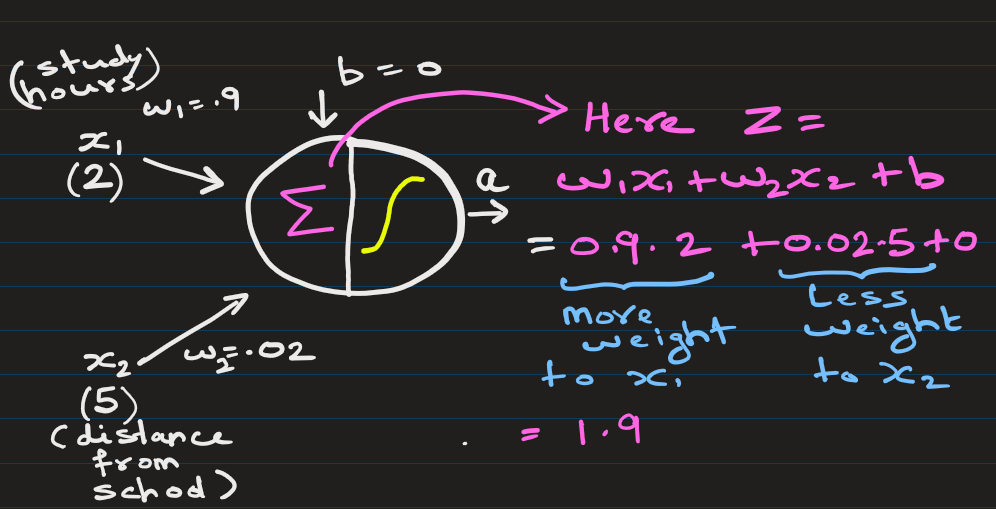 (study
hours)
w₁=.9
x₁
(2)
b=0
Σ
a
x₂
w₂=.02
(5)
(distance
from
school)
Here Z=
w₁x₁+w₂x₂+b
=0.9.2 +0.02.5+0
more
weight
to x₁
Less
weight
to x₂
=1.9